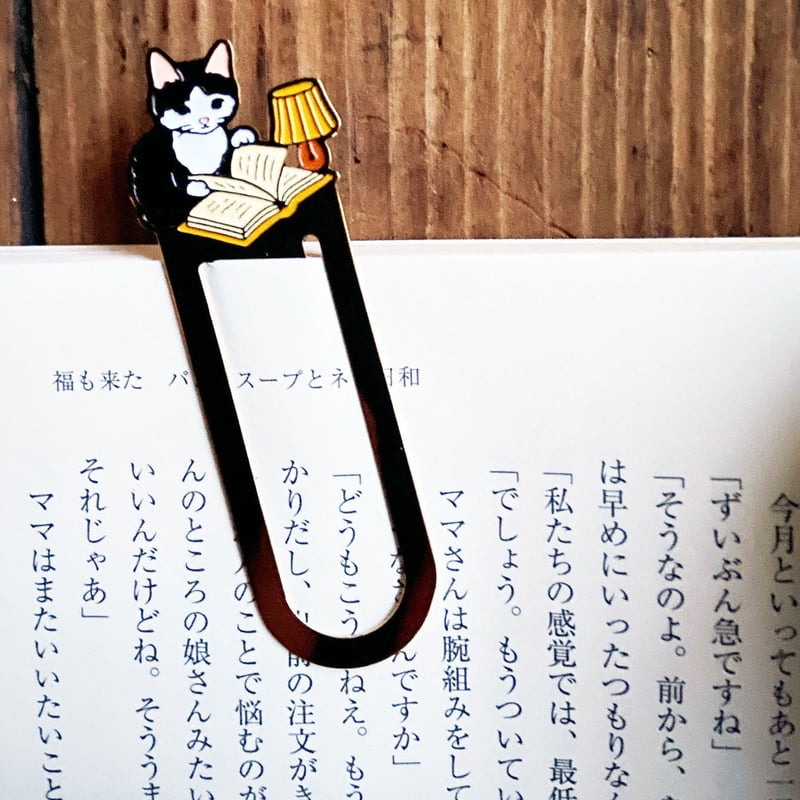 福も来た パ スープとネ 日和
今月といってもあと一
「ずいぶん急ですね」
「そうなのよ。前から、
は早めにいったつもりなん
「私たちの感覚では、最低
「でしょう。もうついてい
ママさんは腕組みをして
な んですか」
「どうもこう ねえ。もう
かりだし、 前の注文がき
のことで悩むのが
んのところの娘さんみたい
いいんだけどね。そううま
それじゃあ」
ママはまたいいたいこと